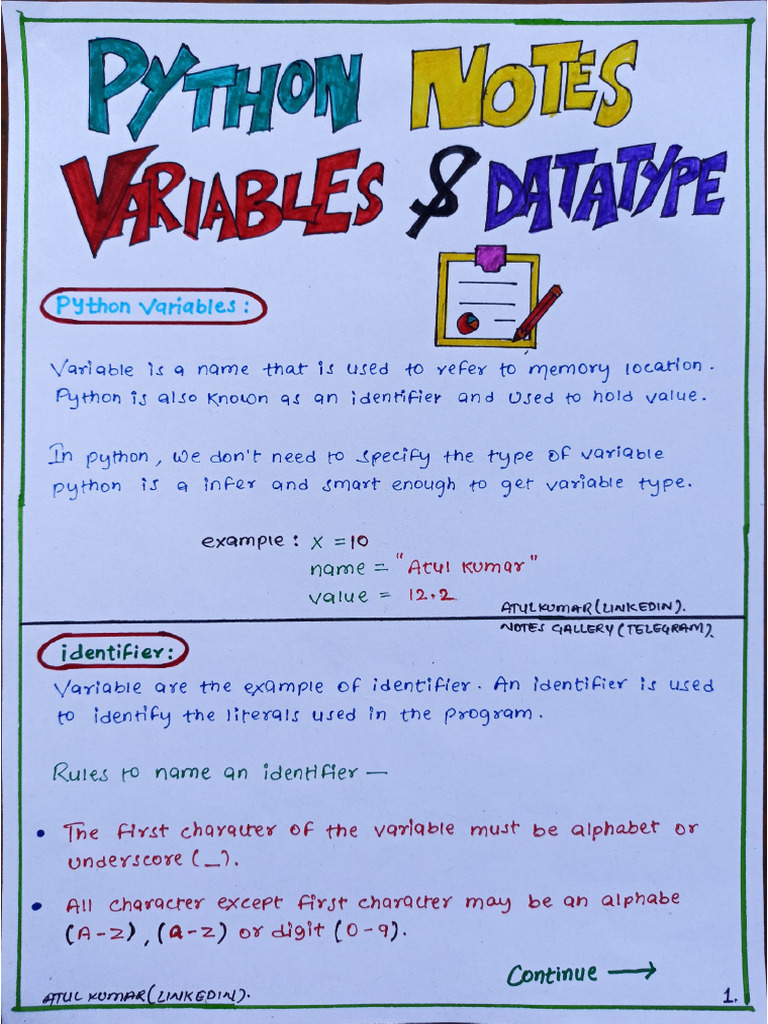 PYTHON NOTES
VARIABLES & DATATYPE
Python Variables:
Variable is a name that is used to refer to memory location.
Python is also known as an identifier and used to hold value.
In python, we don't need to specify the type of variable
python is a infer and smart enough to get variable type.
example: x = 10
name = "Atul kumar"
value = 12.2
ATULKUMAR(LINKEDIN).
NOTES GALLERY(TELEGRAM).
identifier:
Variable are the example of identifier. An identifier is used
to identify the literals used in the program.
Rules to name an identifier —
• The first character of the variable must be alphabet or
underscore (_).
• All character except first character may be an alphabe
(A-Z), (a-z) or digit (0-9).
Continue →
ATUL KUMAR(LINKEDIN).
1.